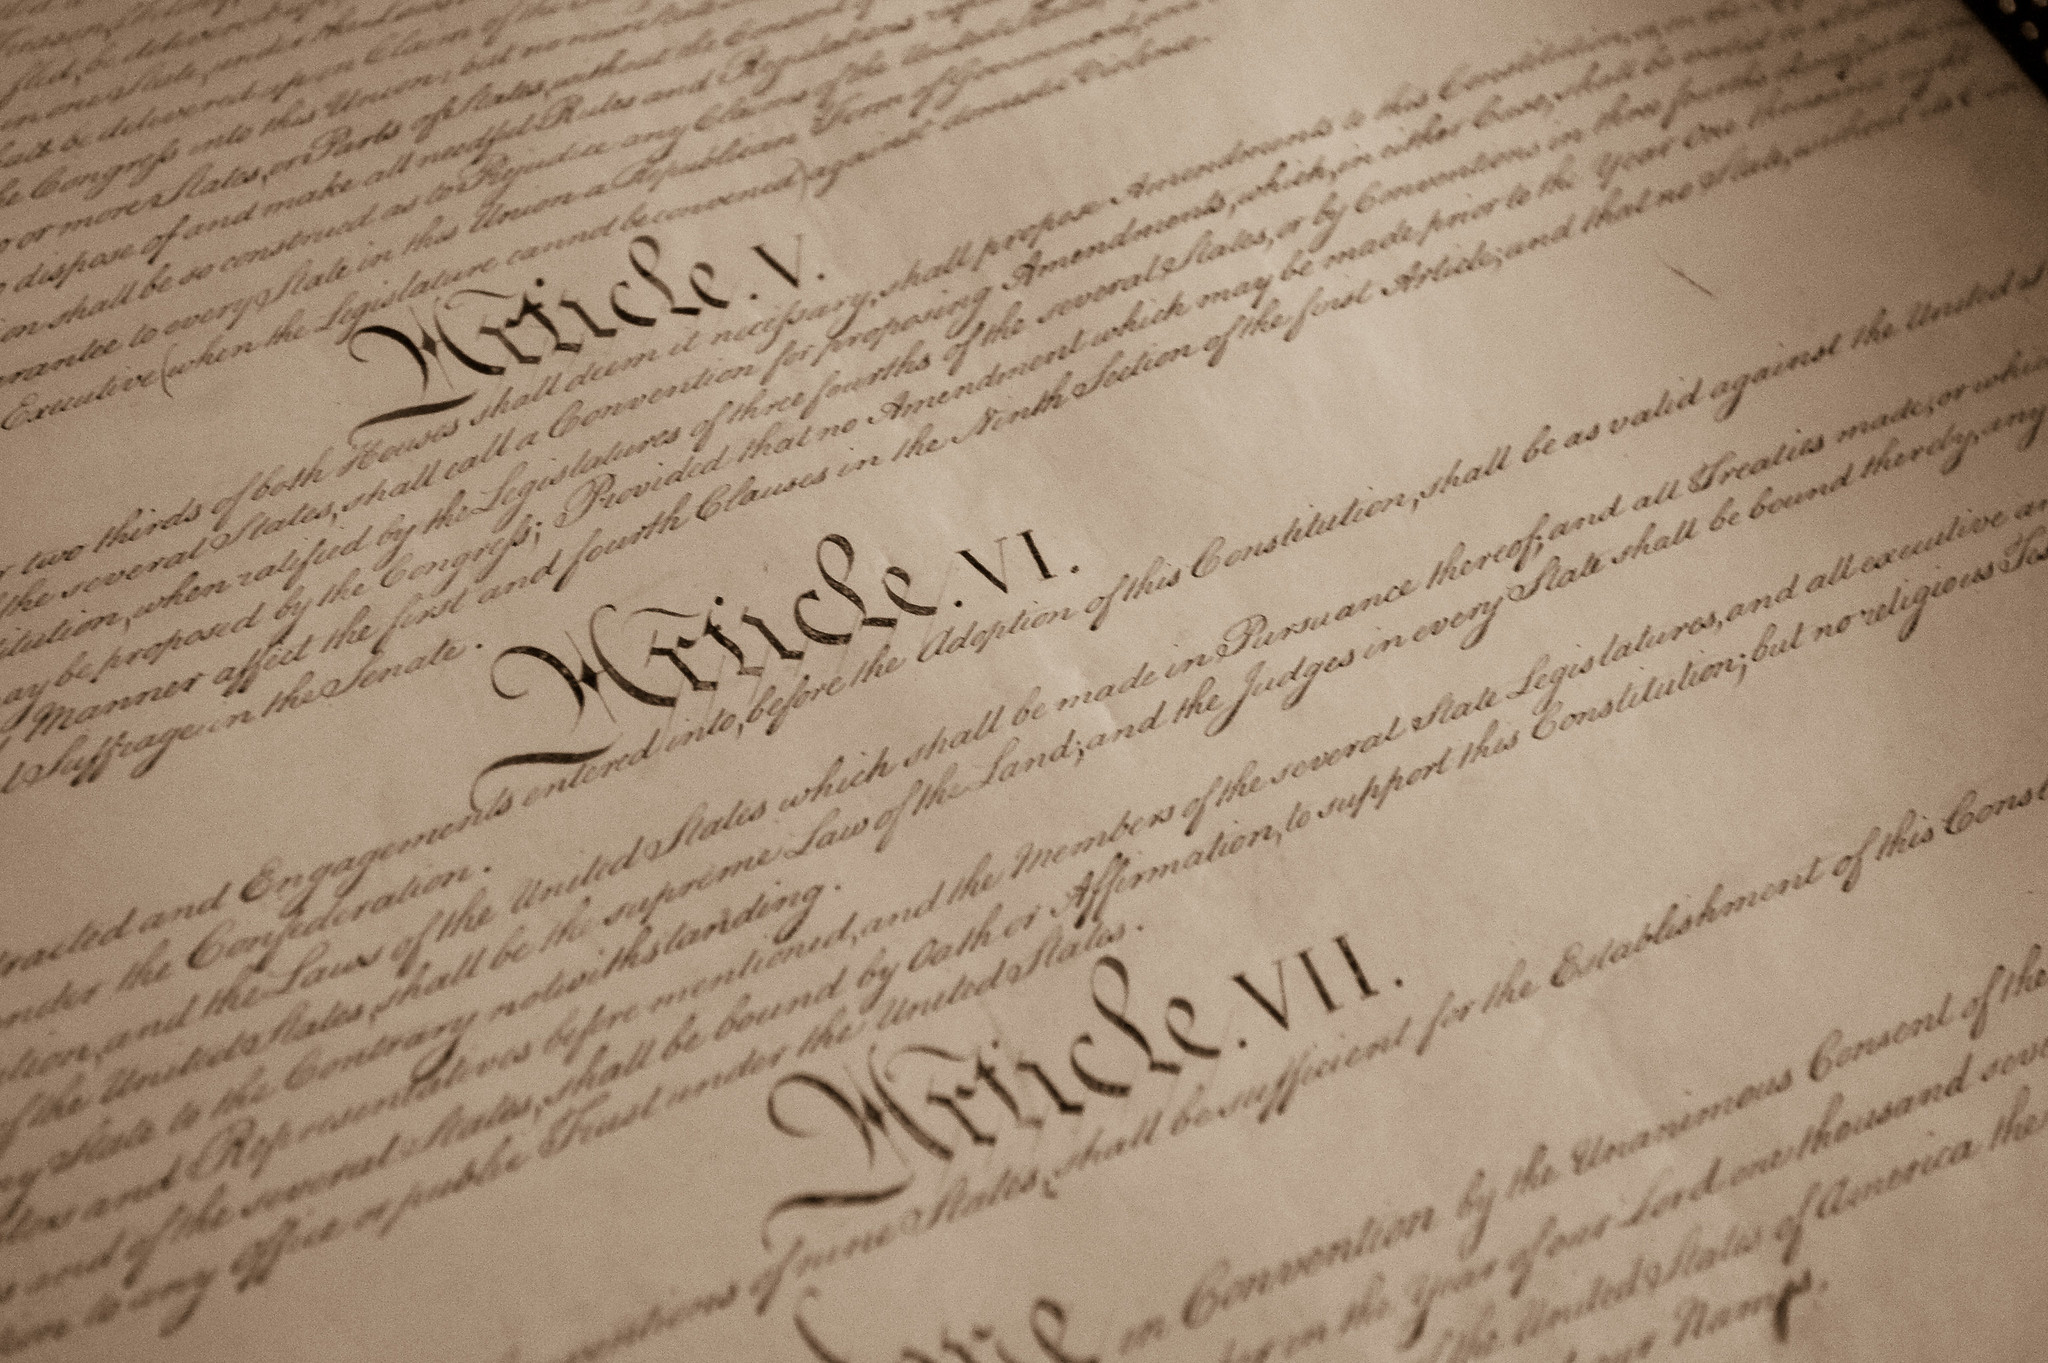 one State, under the Laws
shall be delivered upon Claim of the
the Congress into this Union; but no new
or more States, or Parts of States, without the Consent of
dispose of and make all needful Rules and Regulations
shall be so construed as to Prejudice any Claims of the United States
to every State in this Union a Republican Form of Government, and
Executive (when the Legislature cannot be convened) against domestic Violence.
Article. V.
two thirds of both Houses shall deem it necessary, shall propose Amendments to this Constitution, or, on the
the several States, shall call a Convention for proposing Amendments, which, in either Case, shall be valid to all
when ratified by the Legislatures of three fourths of the several States, or by Conventions in three fourths thereof, as the
may be proposed by the Congress; Provided that no Amendment which may be made prior to the Year One thousand eight
Manner affect the first and fourth Clauses in the Ninth Section of the first Article; and that no State, without its
Suffrage in the Senate.
Article. VI.
and Engagements entered into, before the Adoption of this Constitution, shall be as valid against the United
under the Confederation.
and the Laws of the United States which shall be made in Pursuance thereof; and all Treaties made, or which
of the United States, shall be the supreme Law of the Land; and the Judges in every State shall be bound thereby, any
State to the Contrary notwithstanding.
and Representatives before mentioned, and the Members of the several State Legislatures, and all executive
and of the several States, shall be bound by Oath or Affirmation, to support this Constitution; but no religious
to any Office or public Trust under the United States.
Article. VII.
of nine States, shall be sufficient for the Establishment of this
in Convention by the Unanimous Consent of the
in the Year of our Lord one thousand
the United States of America the
our Names,